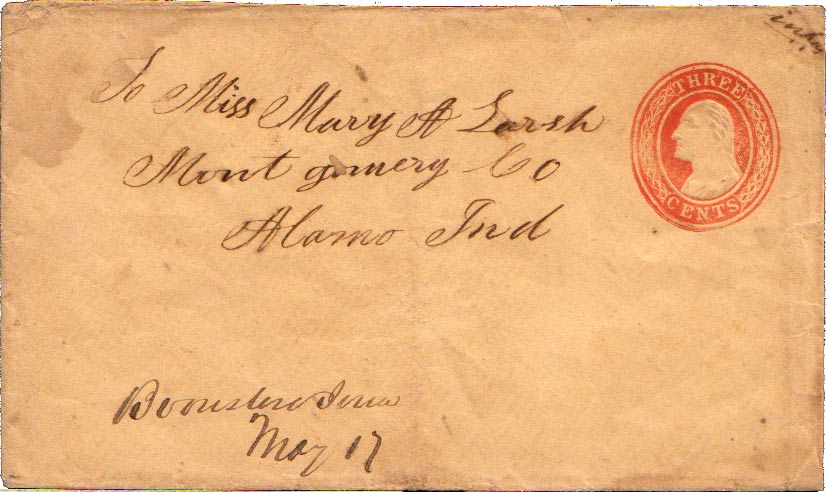 THREE
CENTS
To Miss Mary A Larsh
Montgomery Co
Alamo Ind
Boonsboro Iowa
May 17